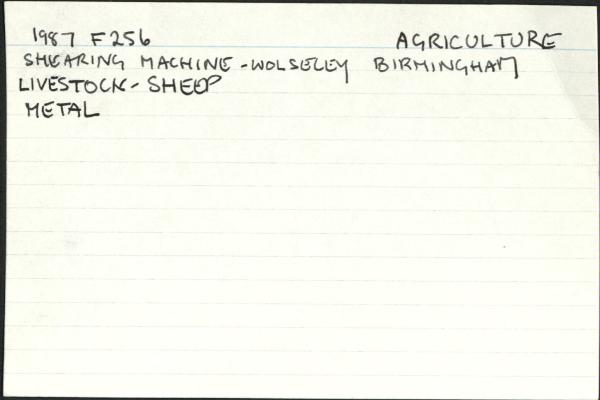 1987 F256 AGRICULTURE
SHEARING MACHINE - WOLSELEY BIRMINGHAM
LIVESTOCK - SHEEP
METAL